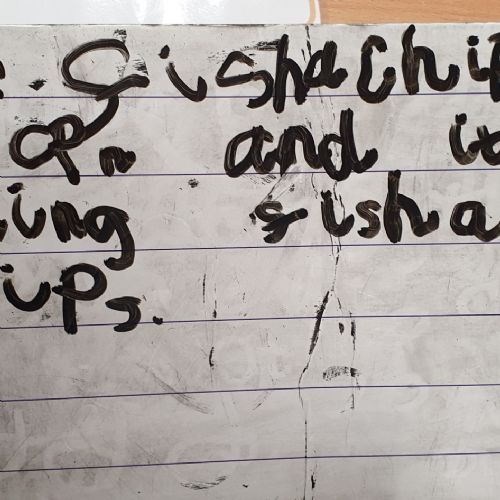 fishachip
opn and it
ing fisha
ips.